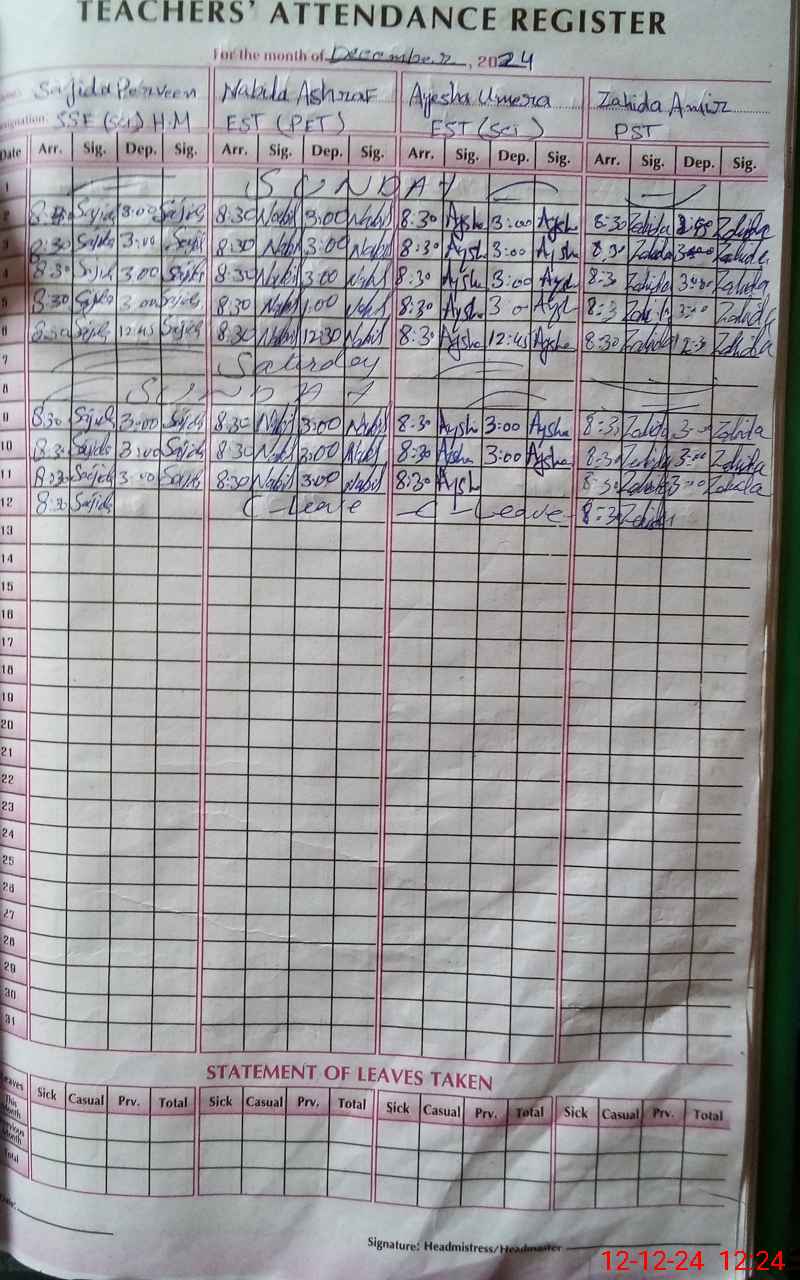 TEACHERS' ATTENDANCE REGISTER
For the month of December, 2024
Sajida Perveen Nabila Ashraf Ayesha Umera Zahida Amir
SSE (Sci) H.M EST (PET) EST (Sci) PST
Date Arr. Sig. Dep. Sig. Arr. Sig. Dep. Sig. Arr. Sig. Dep. Sig. Arr. Sig. Dep. Sig.
1 SUNDAY
2 8:30 Sajida 3:00 Sajida 8:30 Nabil 3:00 Nabil 8:30 Aysha 3:00 Aysha 8:30 Zahida Zahida
3 8:30 Sajida 3:00 Sajida 8:30 Nabil 3:00 Nabil 8:30 Aysha 3:00 Aysha 8:30 Zahida 3:00 Zahida
4 8:30 Sajida 3:00 Sajida 8:30 Nabil 3:00 Nabil 8:30 Aysha 3:00 Aysha 8:3 Zahida 3:00 Zahida
5 8:30 Sajida 3:00 Sajida 8:30 Nabil 1:00 Nabil 8:30 Aysha 3:00 Aysha 8:3 Zahida 3:00 Zahida
6 8:30 Sajida 12:45 Sajida 8:30 Nabil 12:30 Nabil 8:30 Aysha 12:45 Aysha 8:30 Zahida 12:30 Zahida
7 Saturday
8 SUNDAY
9 8:30 Sajida 3:00 Sajida 8:30 Nabil 3:00 Nabil 8:30 Aysha 3:00 Aysha 8:3 Zahida 3:00 Zahida
10 8:30 Sajida 3:00 Sajida 8:30 Nabil 3:00 Nabil 8:30 Aysha 3:00 Aysha 8:30 Zahida 3:00 Zahida
11 8:30 Sajida 3:00 Sajida 8:30 Nabil 3:00 Nabil 8:30 Aysh 8:30 Zahida 3:00 Zahida
12 8:30 Sajida C-Leave C-Leave 8:30 Zahida
13
14
15
16
17
18
19
20
21
22
23
24
25
26
27
28
29
30
31
STATEMENT OF LEAVES TAKEN
Leaves Sick Casual Prv. Total Sick Casual Prv. Total Sick Casual Prv. Total Sick Casual Prv. Total
This Month
Previous Month
Total
Date:
Signature: Headmistress/Headmaster
12-12-24 12:24